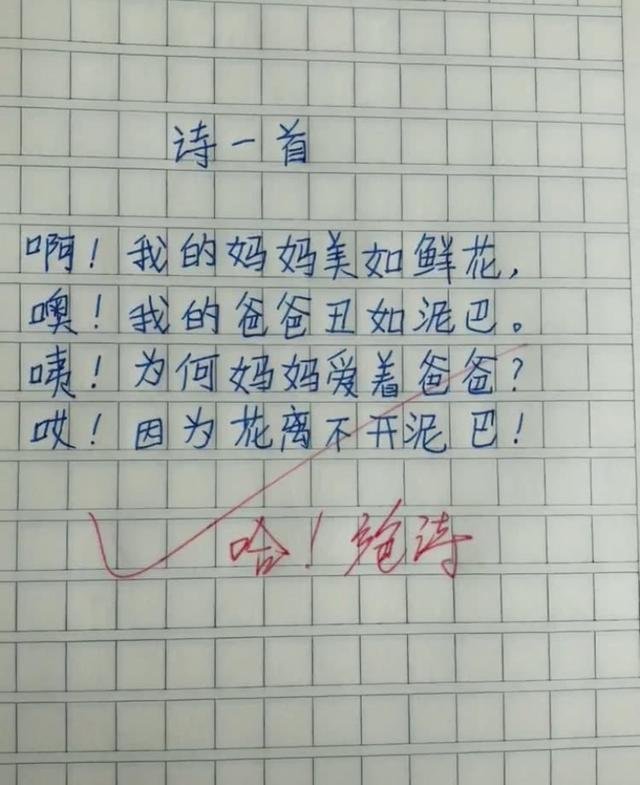 诗一首
啊！我的妈妈美如鲜花，
噢！我的爸爸丑如泥巴。
咦！为何妈妈爱着爸爸？
哎！因为花离不开泥巴！
哈！绝诗